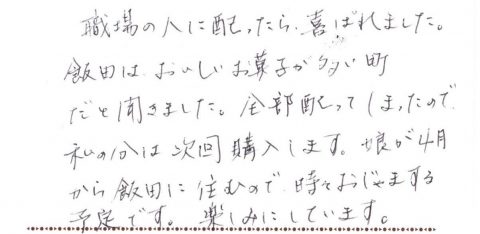 職場の人に配ったら、喜ばれました。
飯田は、おいしいお菓子が多い町
だと聞きました。全部配ってしまったので、
私の分は次回購入します。娘が4月
から飯田に住むので、時々おじゃまする
予定です。楽しみにしています。